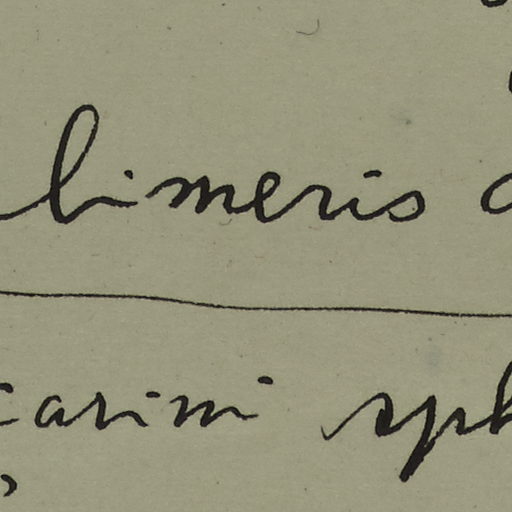 limeris
carini sph